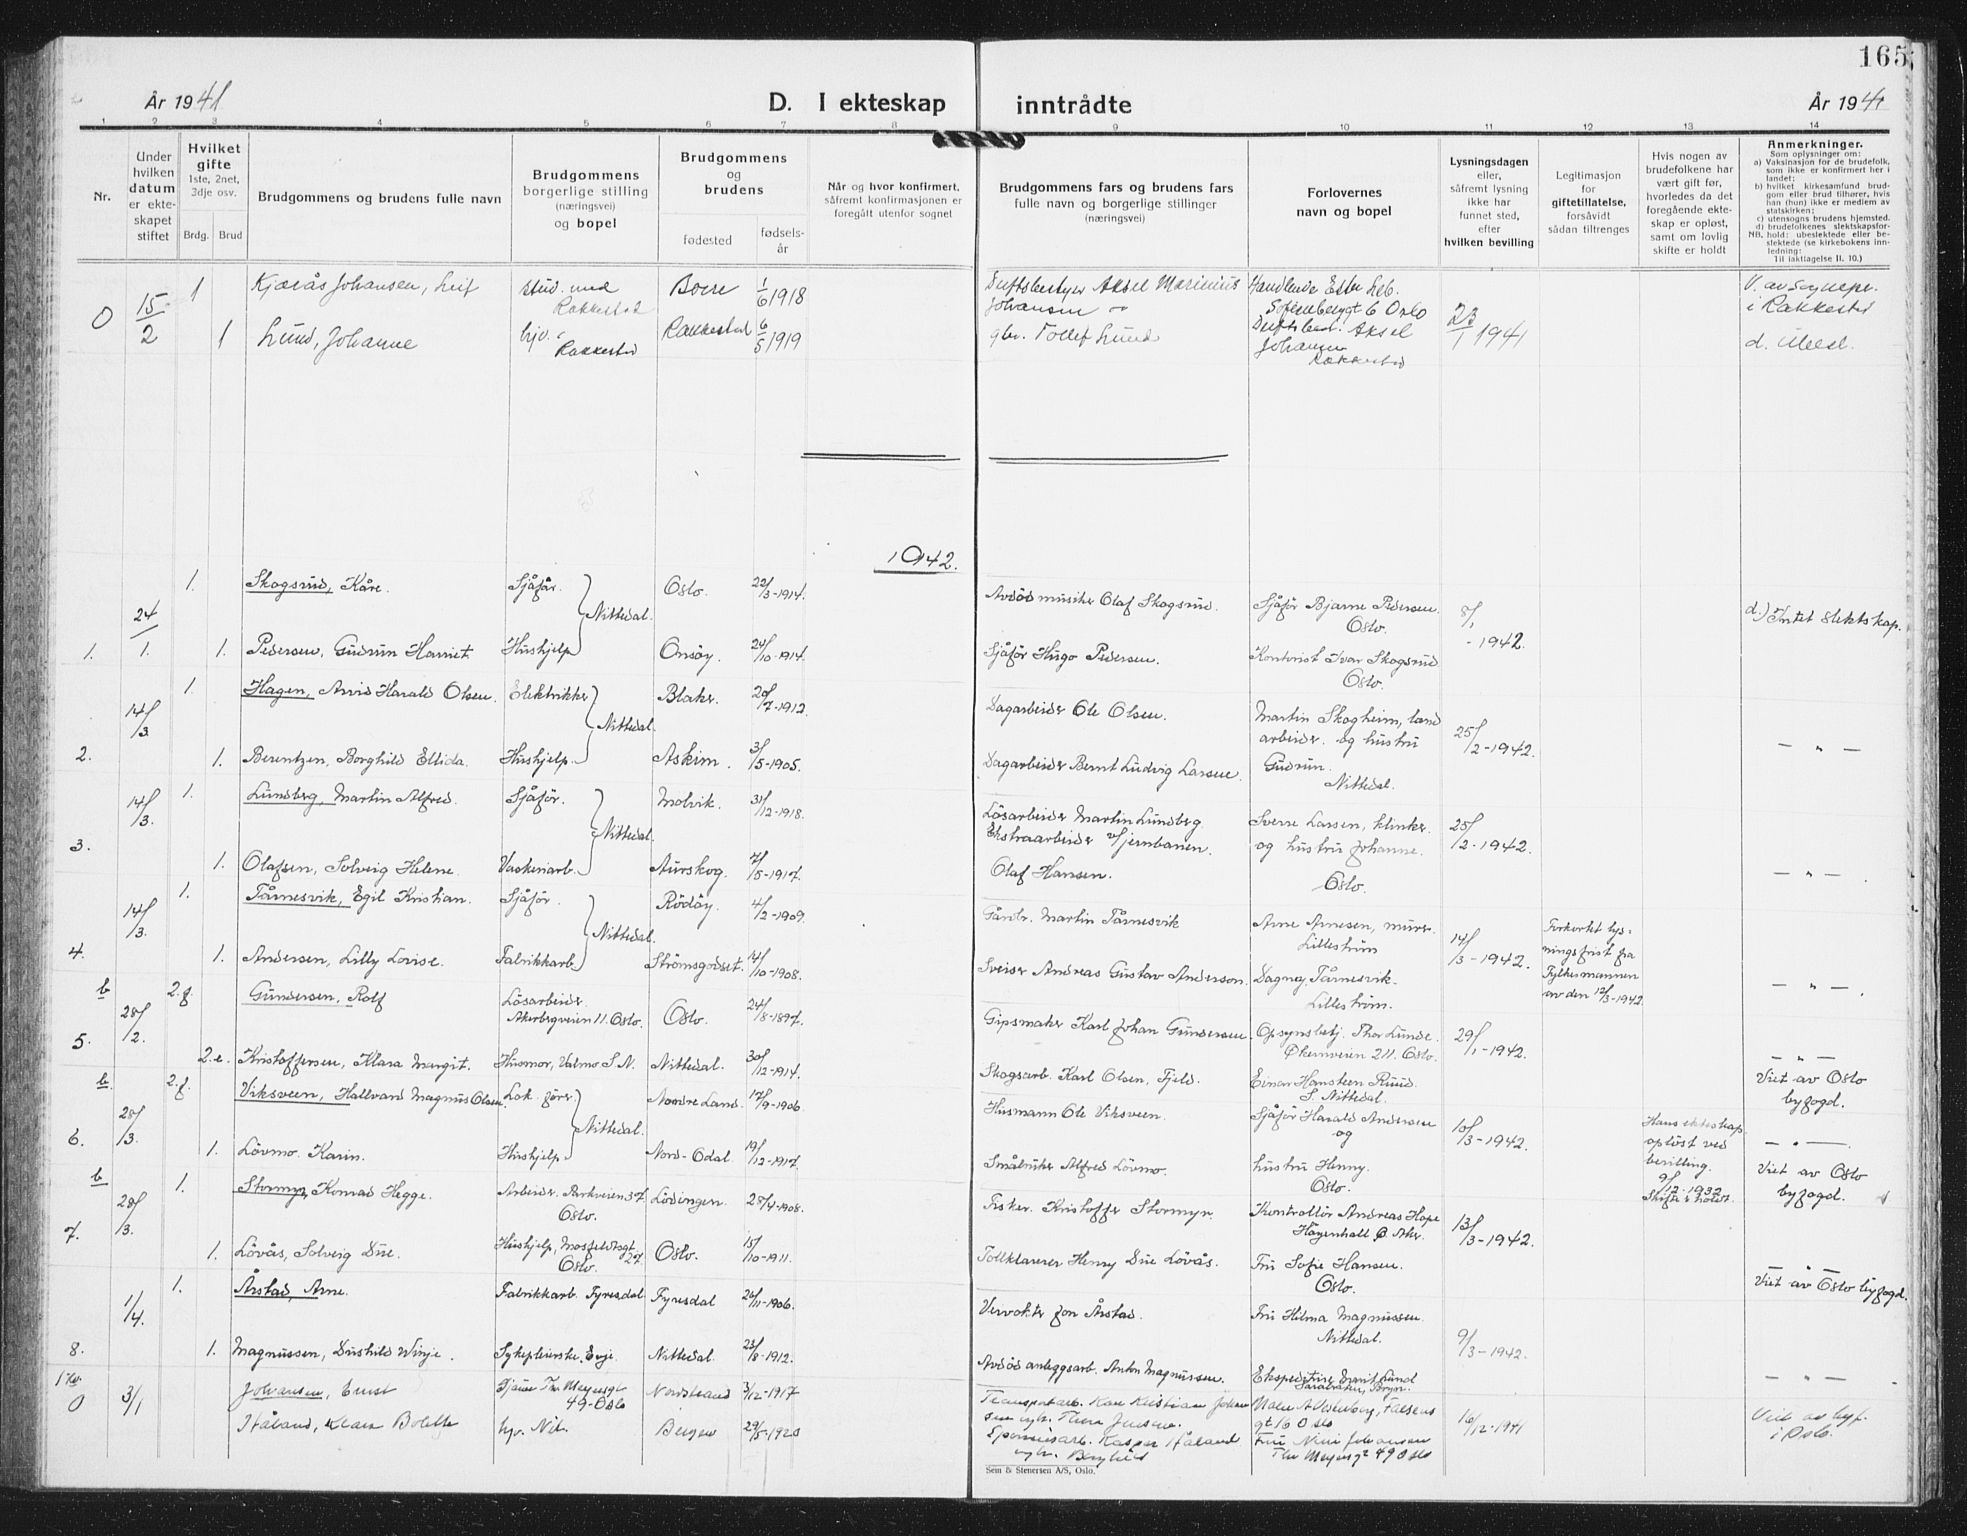 165
År 1941
D. I ekteskap inntrådte
År 194
1 2 3 4 5 6 7 8 9 10 11 12 13 14
Nr.
Under hvilken datum er ekteskapet stiftet
Hvilket gifte
1ste, 2net, 3dje osv.
Brdg. Brud
Brudgommens og brudens fulle navn
Brudgommens borgerlige stilling (næringsvei) og bopel
Brudgommens og brudens
fødested
fødselsår
Når og hvor konfirmert, såfremt konfirmasjonen er foregått utenfor sognet
Brudgommens fars og brudens fars fulle navn og borgerlige stillinger (næringsvei)
Forlovernes navn og bopel
Lysningsdagen eller, såfremt lysning ikke har funnet sted, efter hvilken bevilling
Legitimasjon for giftetillatelse, forsåvidt sådan tiltrenges
Hvis nogen av brudefolkene har vært gift før, hvorledes da det foregående ekteskap er opløst, samt om lovlig skifte er holdt
Anmerkninger.
Som oplysninger om:
a) Vaksinasjon for de brudefolk, som ikke er konfirmert her i landet;
b) hvilket kirkesamfund brudgom eller brud tilhører, hvis han (hun) ikke er medlem av statskirken;
c) utensogns brudens hjemsted.
d) brudefolkenes slektskapsforhold: ubeslektede eller beslektede (se kirkebokens innledning:
NB.
Til iakttagelse II. 10.)
0 15/2 1 Kjærås Johansen, Leif stud. med Rakkestad 1/6 1918
Johansen Handlende Sofienberggt 6 Oslo 23/1 1941 V. av Sognepr. i Rakkestad
1 Lund, Johanne hjv. Rakkestad Rakkestad 6/5 1919
gbr. Tollef Lund Aksel Johansen Rakkestad d. Ubesl.
1942.
1. 24/1. 1. Skogsrud, Kåre. Sjåfør. Nittedal. Oslo. 22/3-1914.
Avdød musiker Olaf Skogsrud. Sjåfør Bjarne Pedersen. Oslo. 8/1-1942. d.) Intet slektskap.
1. Pedersen, Gudrun Harriet. Hushjelp Onsøy. 24/10-1914.
Sjåfør Hugo Pedersen. Kontorist Ivar Skogsrud Oslo.
2. 14/3. 1. Hagen, Arvid Harald Olsen. Elektriker Nittedal. Blaker. 20/7-1912.
Dagarbeider Ole Olsen. Martin Skogheim, landarbeider. og hustru Gudrun. Nittedal. 25/2-1942. — „ —
1. Berentzen, Borghild Ellida. Hushjelp. Askim. 3/5-1905.
Dagarbeider Bernt Ludvig Larsen.
3. 14/3. 1. Lundberg, Martin Alfred. Sjåfør. Nittedal. Malvik. 31/12-1918.
Løsarbeider Martin Lundberg. Sverre Larsen, klinker. og hustru Johanne. Oslo. 25/2-1942. — „ — .
1. Olafsen, Solveig Helene. Vaskeriarb. Aurskog. 7/5-1917.
Ekstraarbeider v/jernbanen. Olaf Hansen.
4. 14/3. 1. Tårnesvik, Egil Kristian. Sjåfør. Nittedal. Rödøy. 4/2-1909.
Gårdbr. Martin Tårnesvik Arne Arnesen, murer. Lillestrøm 14/3-1942. Forkortet lysningsfrist fra Fylkesmannen av den 12/3-1942. — „ — .
1. Andersen, Lilly Lovise. Fabrikkarb. Strømsgodset. 14/10-1908.
Sveiser Andreas Gustav Anderson. Dagny Tårnesvik. Lillestrøm.
b 5. 28/2. 2.g. Gundersen, Rolf Løsarbeider. Akerbergveien 11. Oslo. Oslo. 24/8-1897.
Gipsmaker Karl Johan Gundersen. Opsynsbetj. Thor Lunde. Økernveien 211. Oslo. 29/1-1942. — „ —
2.e. Kristoffersen, Klara Margit. Husmor, Valmo S.N. Nittedal. 30/12-1914.
Skogsarb. Karl Olsen, Fjeld. Einar Hansteen Ruud. S. Nittedal. Viet av Oslo byfogd.
b 6. 28/3. 2.g. Viksveen, Hallvard Magnus Olsen. Lok. fører. Nittedal. Nordre Land. 17/9-1906.
Husmann Ole Viksveen. Sjåfør Harald Andersen og hustru Henny. Oslo. 10/3-1942. Hans ekteskap opløst ved bevilling. 9/12-1932. Skifte e. holdt. — „ —
1. Lövmo Karin. Hushjelp Nord-Odal. 19/12-1917.
Småbruker Alfred Lövmo. Viet av Oslo byfogd.
b 7. 28/3. 1. Stormyr, Konrad Hegge. Arbeider. Parkveien 37. Oslo. Lödingen. 28/4-1908.
Fisker. Kristoffer Stormyr. Kontrollør Andreas Hope Høyenhall Ø. Aker. 13/3-1942.
1. Lövås, Solveig Due. Hushjelp, Mosfeldtsgt 27. Oslo. Oslo. 15/10-1911.
Tollklarerer Henry Due Lövås. Fru Sofie Hansen. Oslo. — „ — Viet av Oslo byfogd.
8. 1/4. 1. Årstad, Arne. Fabrikkarb. Fyresdal Fyresdal 26/11-1906.
Vervokter Jon Årstad. Fru Hilma Magnussen. Nittedal. 9/3-1942.
1. Magnussen, Dushild Winje. Sykepleierske. Evje. Nittedal. 23/8-1912.
Avdød anleggsarb. Anton Magnussen. Lund — „ — .
0 3/1 Johansen, Ernst Thv. Meyersgt 49-Oslo Nordstrand 3/12-1917
Transportarb. Karl Kristian Johansen Oslo 16/12-1941 Viet av byf. i Oslo.
Håland, Klara Bolette hjv. Nit. Bergen 29/5-1920
Kasper Håland Fru Johansen Thv Meyersgt 49 Oslo
Sem & Stenersen A/S, Oslo.